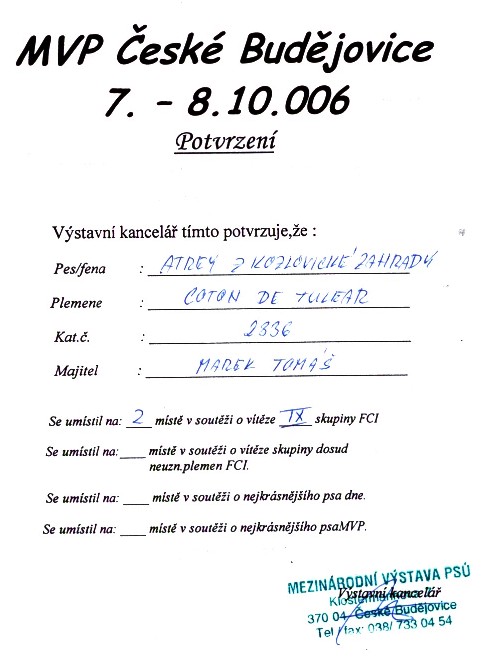 MVP České Budějovice
7. – 8.10.006
Potvrzení
Výstavní kancelář tímto potvrzuje,že :
Pes/fena : ATREY Z KOZLOVICKÉ ZAHRADY
Plemene : COTON DE TULEAR
Kat.č. : 2336
Majitel : MAREK TOMÁŠ
Se umístil na: 2 místě v soutěži o vítěze IX skupiny FCI
Se umístil na: místě v soutěži o vítěze skupiny dosud
neuzn.plemen FCI.
Se umístil na: místě v soutěži o nejkrásnějšího psa dne.
Se umístil na: místě v soutěži o nejkrásnějšího psaMVP.
MEZINÁRODNÍ VÝSTAVA PSŮ
Výstavní kancelář
370 04 České Budějovice
Tel / fax: 038/ 733 04 54